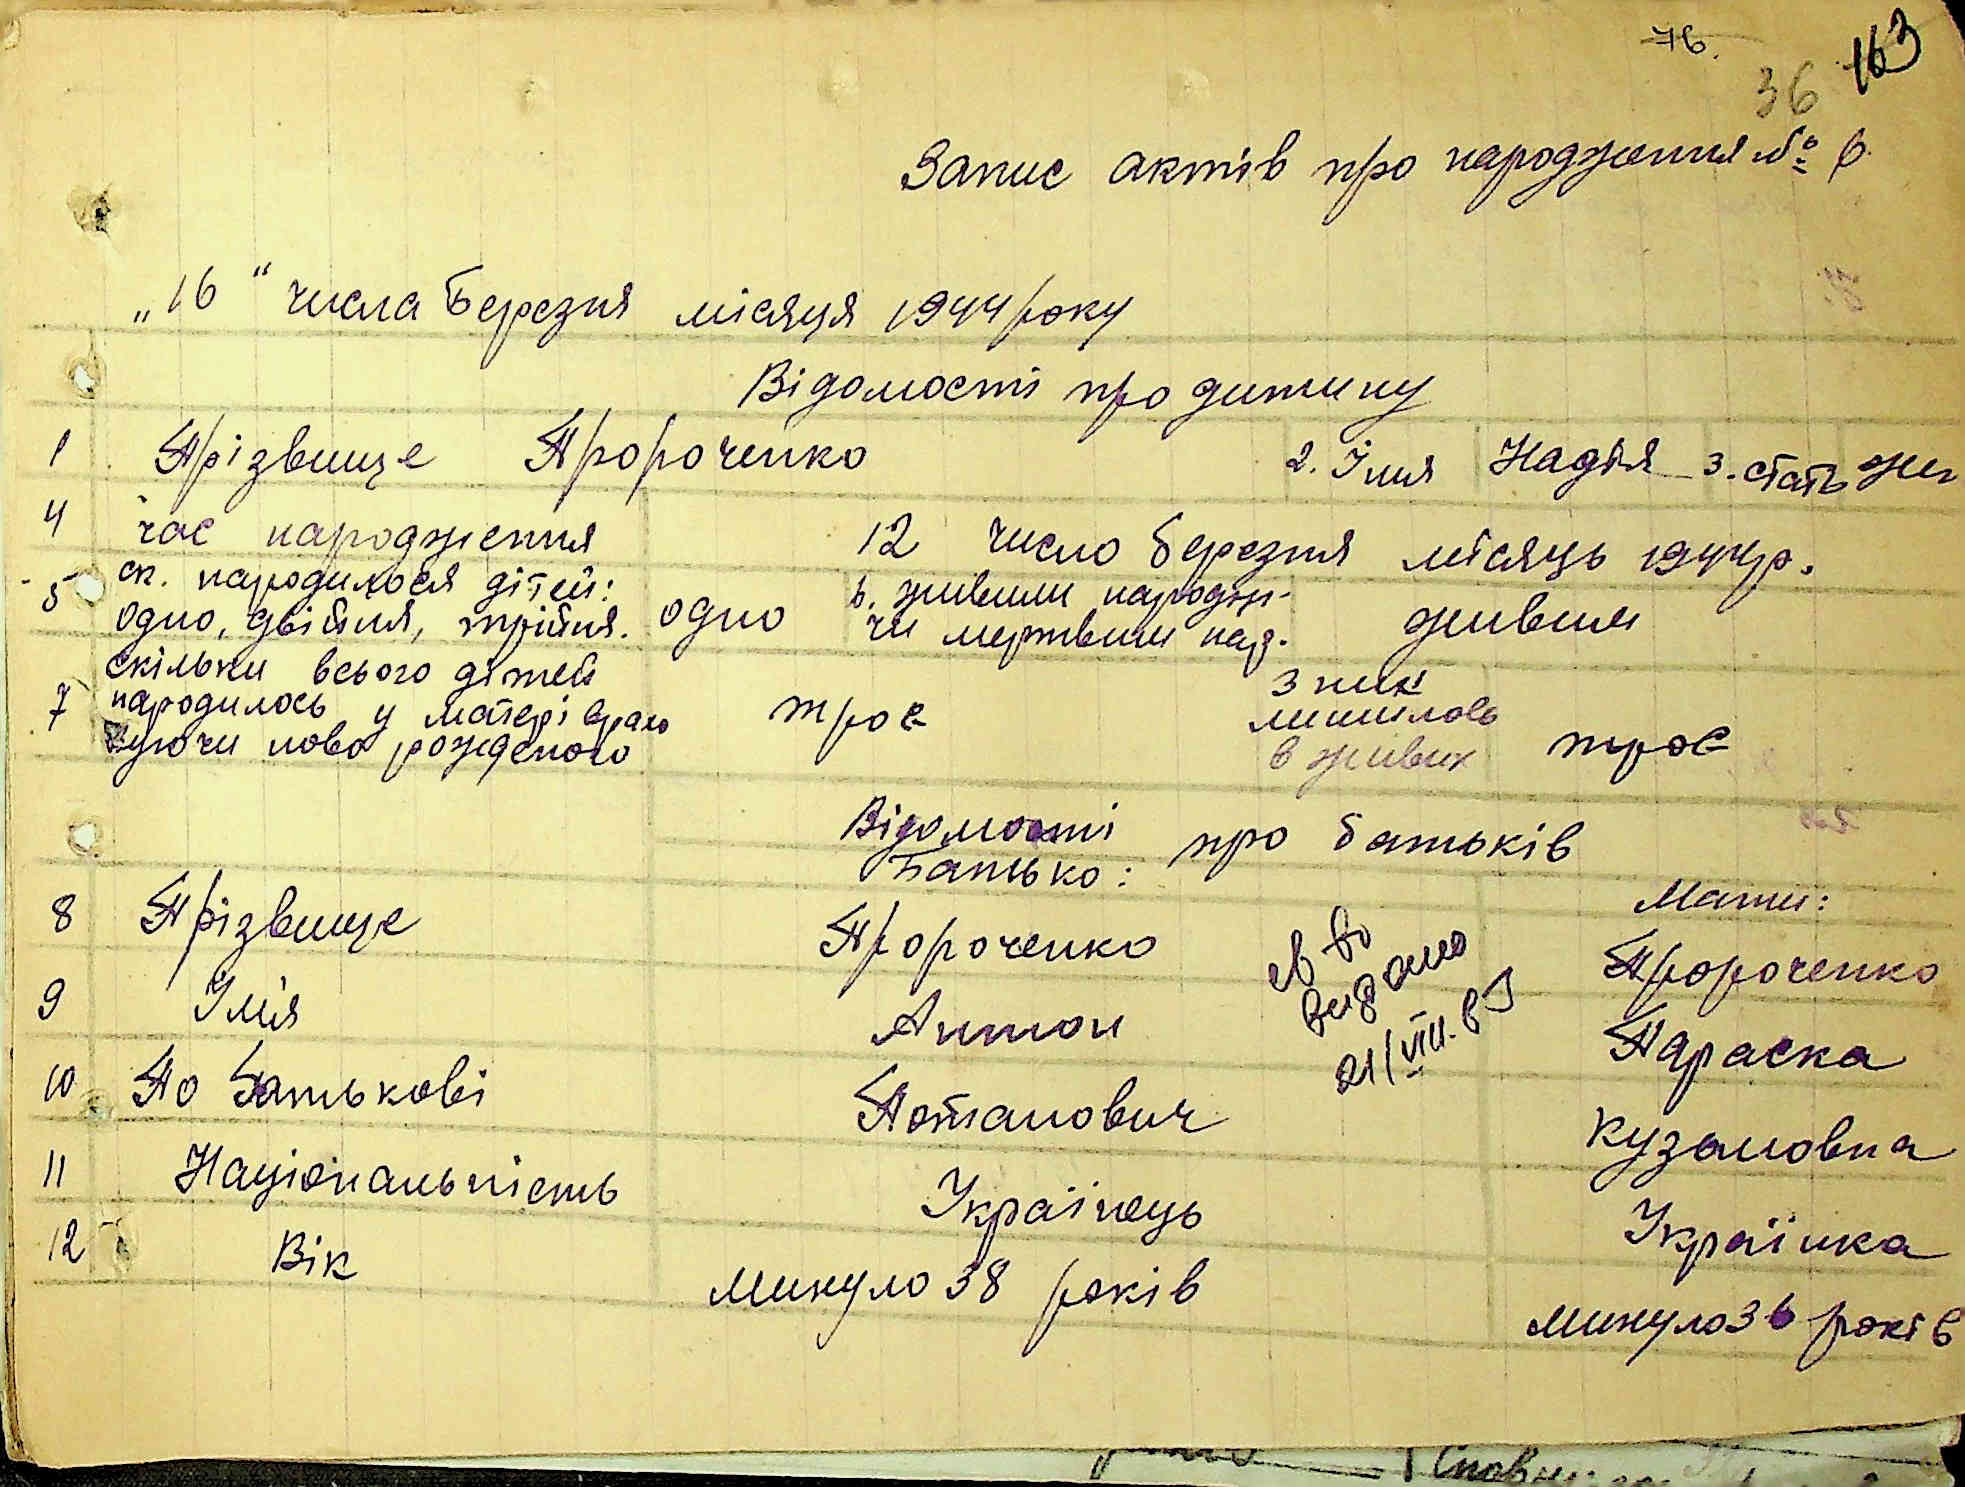 76.
36 163
Запис актів про народження № 6.
„16“ числа Березня місяця 1944 року
Відомості про дитину
1 Прізвище Пророченко 2. Імя Надія 3. стать жін
4 час народження 12 число березня місяць 1944р.
5 ск. народилося дітей: одно, двійня, трійня. одно 6. живими народж- чи мертвими нар. живим
7 скільки всього дітей народилось у матері врахо вуючи новорожденого троє З них лишилось в живих троє
Відомості про батьків
Батько: Мати:
8 Прізвище Пророченко Пророченко
9 Імя Антон Параска
св во
видано
21/VIII.63
10 По Батькові Потапович Кузьмовна
11 Національність Українець Українка
12 Вік минуло 38 років минуло 36 років